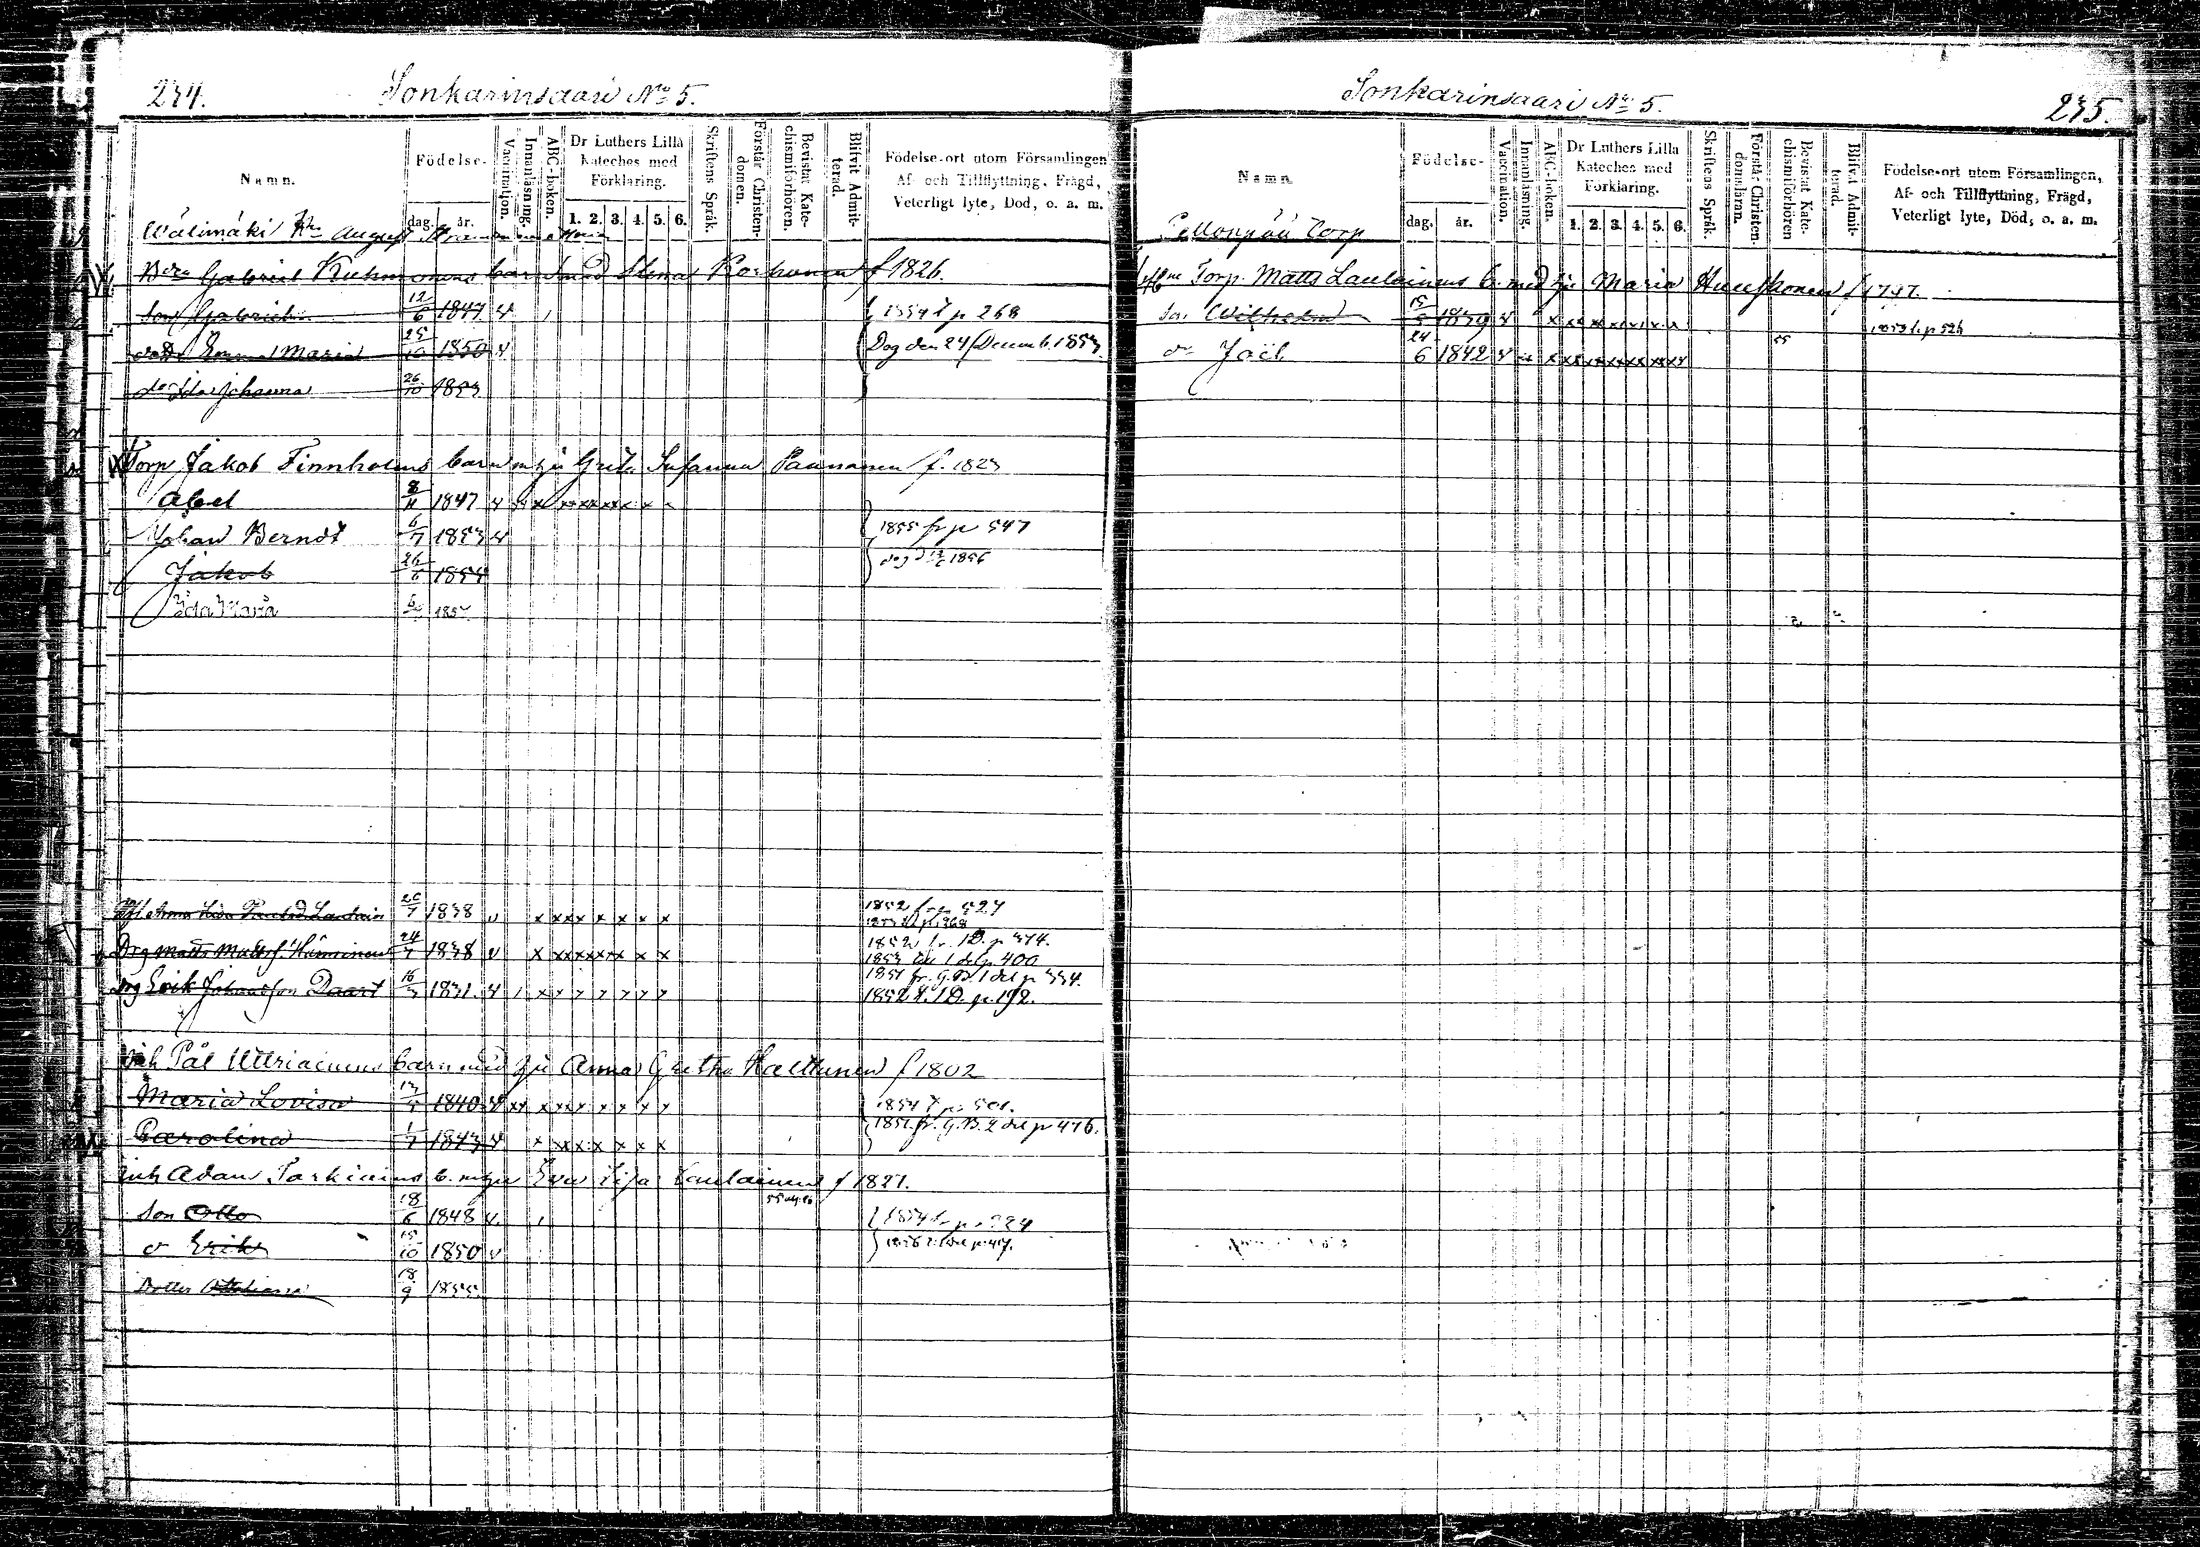 234. Sonkarinsaari No 5.
Namn.
Födelse-
dag. år.
Vaccination.
Innanläsning.
ABC-boken.
Dr Luthers Lilla
Kateches med
Förklaring.
1. 2. 3. 4. 5. 6.
Skriftens Språk.
Förstår Christen-
domen.
Bevistat Kate-
chismiförhören.
Blifvit Admit-
terad.
Födelse-ort utom Församlingen
Af- och Tillflyttning, Frägd,
Veterligt lyte, Död, o. a. m.
Wälimäki August
Gabriel barn med Stina Korhonen f 1826.
son Gabriel 12/6 1847. v 1854 t p 268
Maria 1850 v Dog den 24 Decemb. 1853.
do Ida Johanna 26/10 1853
Torp Jakob Finnholms barn m hu Greta Susanna Paunanen f. 1823
Abel 1847 v x x x x x x x x
Johan Berndt 6/7 1853 v 1855 fr p 547
Jakob 26/6 1855 dog 1856
Ida Maria 1857
Anna Lisa 1838 v x x x x x x x x 1852 fr p 527
Drg Matts Matts. Hämninen 24/7 1838 v x x x x x x x x x 1852 fr. 1 D. p 374.
1853 till 1 del p 400
Drg Erik Johansson Daart 16/3 1831. v 1851 fr. G.B. 1 del p 334.
1852 t. 1 D. p. 192.
Inh Pål Uttriainens barn med hu Anna Gretha Halttunen f 1802
Maria Lovisa 1840 v x x x x x x x x x 1854 t p. 501.
Carolina 1/7 1843 v x x x x x x x x 1851 fr. G.B. 2 del p 476.
Inh Adam Parkiains b. m hu Eva Lisa Laulainen f 1821.
Son Otto 18/6 1848 v. 1854 fr p 324
do Erik 15/10 1850 v
Dotter 18/9 1855.
Sonkarinsaari No 5. 235.
Namn.
Födelse-
dag. år.
Vaccination.
Innanläsning.
ABC-boken.
Dr Luthers Lilla
Kateches med
Förklaring.
1. 2. 3. 4. 5. 6.
Skriftens Språk.
Förstår Christen-
domsläran.
Bevistat Kate-
chismiförhören
Blifvit Admit-
terad.
Födelse-ort utom Församlingen,
Af- och Tillflyttning, Frägd,
Veterligt lyte, Död, o. a. m.
Pellonpää Torp
Torp. Matts Laulainens b. med hu Maria f 1797.
son Wilhelm 1839 v x x x x x x x x 1853 t. p 526
do Joël 24/6 1842 v x x x x x x x x x x 55